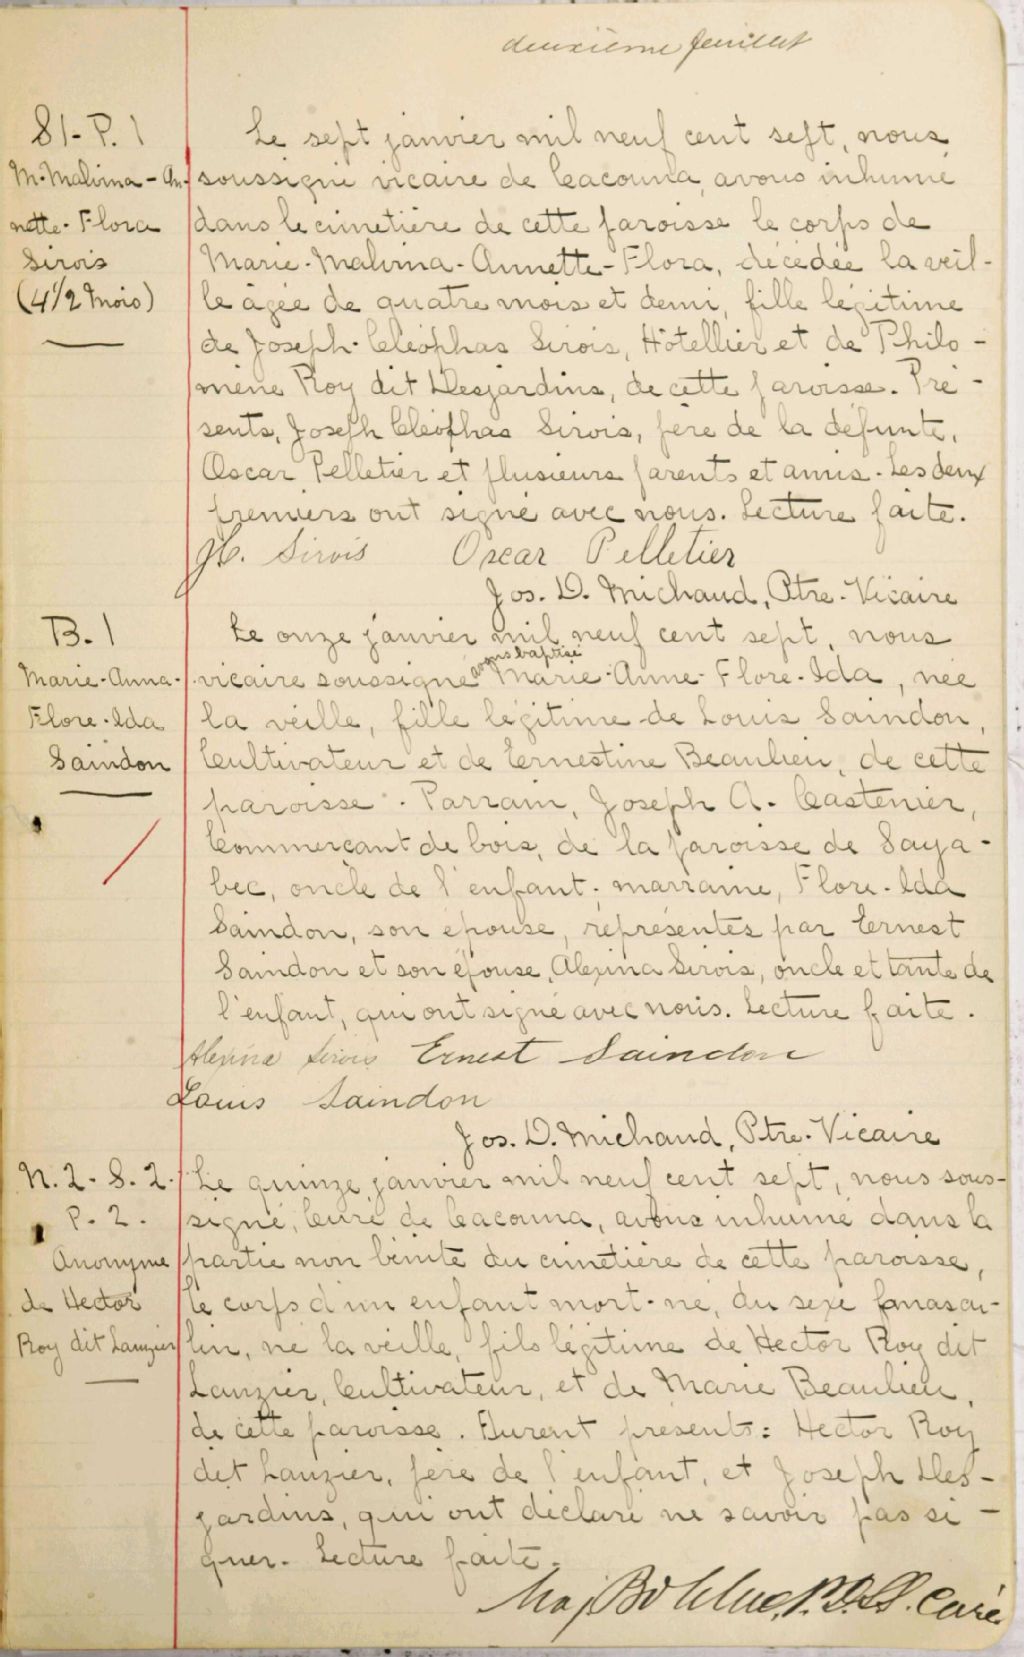 deuxième feuillet
S1-P.1
M. Malvina-An-
nette-Flora
Sirois
(4 1/2 mois)
Le sept janvier mil neuf cent sept, nous
soussigné vicaire de Cacouna, avons inhumé
dans le cimetière de cette paroisse le corps de
Marie-Malvina-Annette-Flora, décédée la veil-
le âgée de quatre mois et demi, fille légitime
de Joseph-Cléophas Sirois, Hôtellier et de Philo-
mène Roy dit Desjardins, de cette paroisse. Pré-
sents, Joseph Cléophas Sirois, père de la défunte,
Oscar Pelletier et plusieurs parents et amis. Les deux
premiers ont signé avec nous. Lecture faite.
J.C. Sirois Oscar Pelletier
Jos. D. Michaud, Ptre-Vicaire
B.1
Marie-Anna-
Flore-Ida
Saindon
Le onze janvier mil neuf cent sept, nous
vicaire soussigné avons baptisé Marie-Anne-Flore-Ida, née
la veille, fille légitime de Louis Saindon,
Cultivateur et de Ernestine Beaulieu, de cette
paroisse. Parrain, Joseph A. Castenier,
Commerçant de bois, de la paroisse de Saya-
bec, oncle de l'enfant; marraine, Flore-Ida
Saindon, son épouse, représentés par Ernest
Saindon et son épouse, Alexina Sirois, oncle et tante de
l'enfant, qui ont signé avec nous. Lecture faite.
Alexina Sirois Ernest Saindon
Louis Saindon
Jos. D. Michaud, Ptre-Vicaire
N.2-S.2.
P-2.
Anonyme
de Hector
Roy dit Lauzier
Le quinze janvier mil neuf cent sept, nous sous-
signé, Curé de Cacouna, avons inhumé dans la
partie non bénite du cimetière de cette paroisse,
le corps d'un enfant mort-né, du sexe mascu-
lin, né la veille, fils légitime de Hector Roy dit
Lauzier, Cultivateur, et de Marie Beaulieu,
de cette paroisse. Furent présents: Hector Roy
dit Lauzier, père de l'enfant, et Joseph Des-
jardins, qui ont déclaré ne savoir pas si-
gner. Lecture faite.
Curé